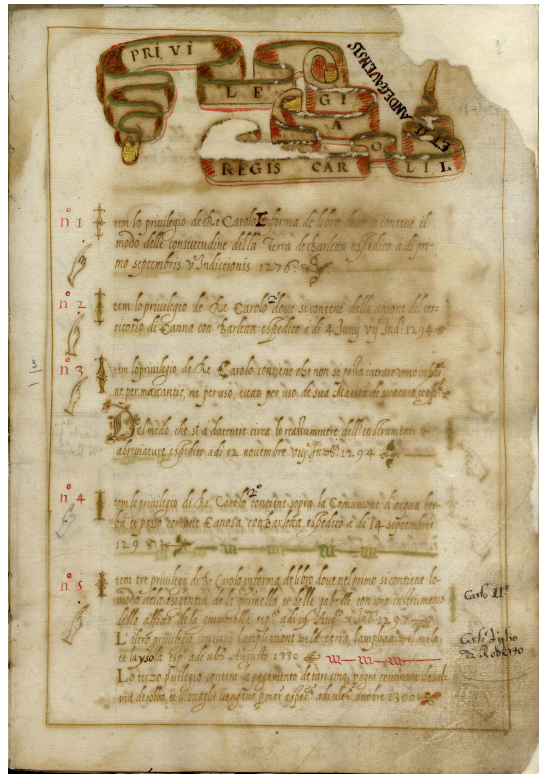 PRIVI
LE GI
A
REGIS CAR O LI I.
ET II
ANDEGAVENSIS
1
nº 1 Item lo privilegio de Re Carolo I informa de libro dove si contene il
modo delle consuetudine della Terra de Barletta espedito a di pri-
mo septembris Vᵉ Indictionis 1276
nº 2 Item lo privilegio de Re Carolo 2º dove si contene della unione del ter-
ritorio di Canna con Barletta espedito a di 4 Junij vij Indᵉ 1294
nº 3 Item lo privilegio de Re Carolo contiene che non se possa intrare vino infor.
ne per marcantie, ne per uso, eccetto per uso de sua Maestà
Del modo che sta da tenere circa lo reassummere dell' instrumenti et
abreviature espedito a di 12 novembre viij Indᵉ 1294
nº 4 Item lo privilegio di Re Carolo 2º contiene sopra la Comunione d'acqua her-
ba et passo con Canosa con Barletta espedito a di 14 septembre
1298
nº 5 Item tre privilegij di Re Carolo informa de libro dove nel primo si contiene lo
modo della esigentia de la et delle gabelle con uno instrumento
dello affitto della espᵗᵒ a di 19 Indᵉ 1297
L'altro privilegio contiene l'ampliatione della terra,
et la ysola esp. a di Augusto 1330
Lo terzo privilegio contiene lo pagamento de tari cinq; p ogni centenara de sal-
ma 1300
Carlo IIº
Carlo figlio
Di Roberto